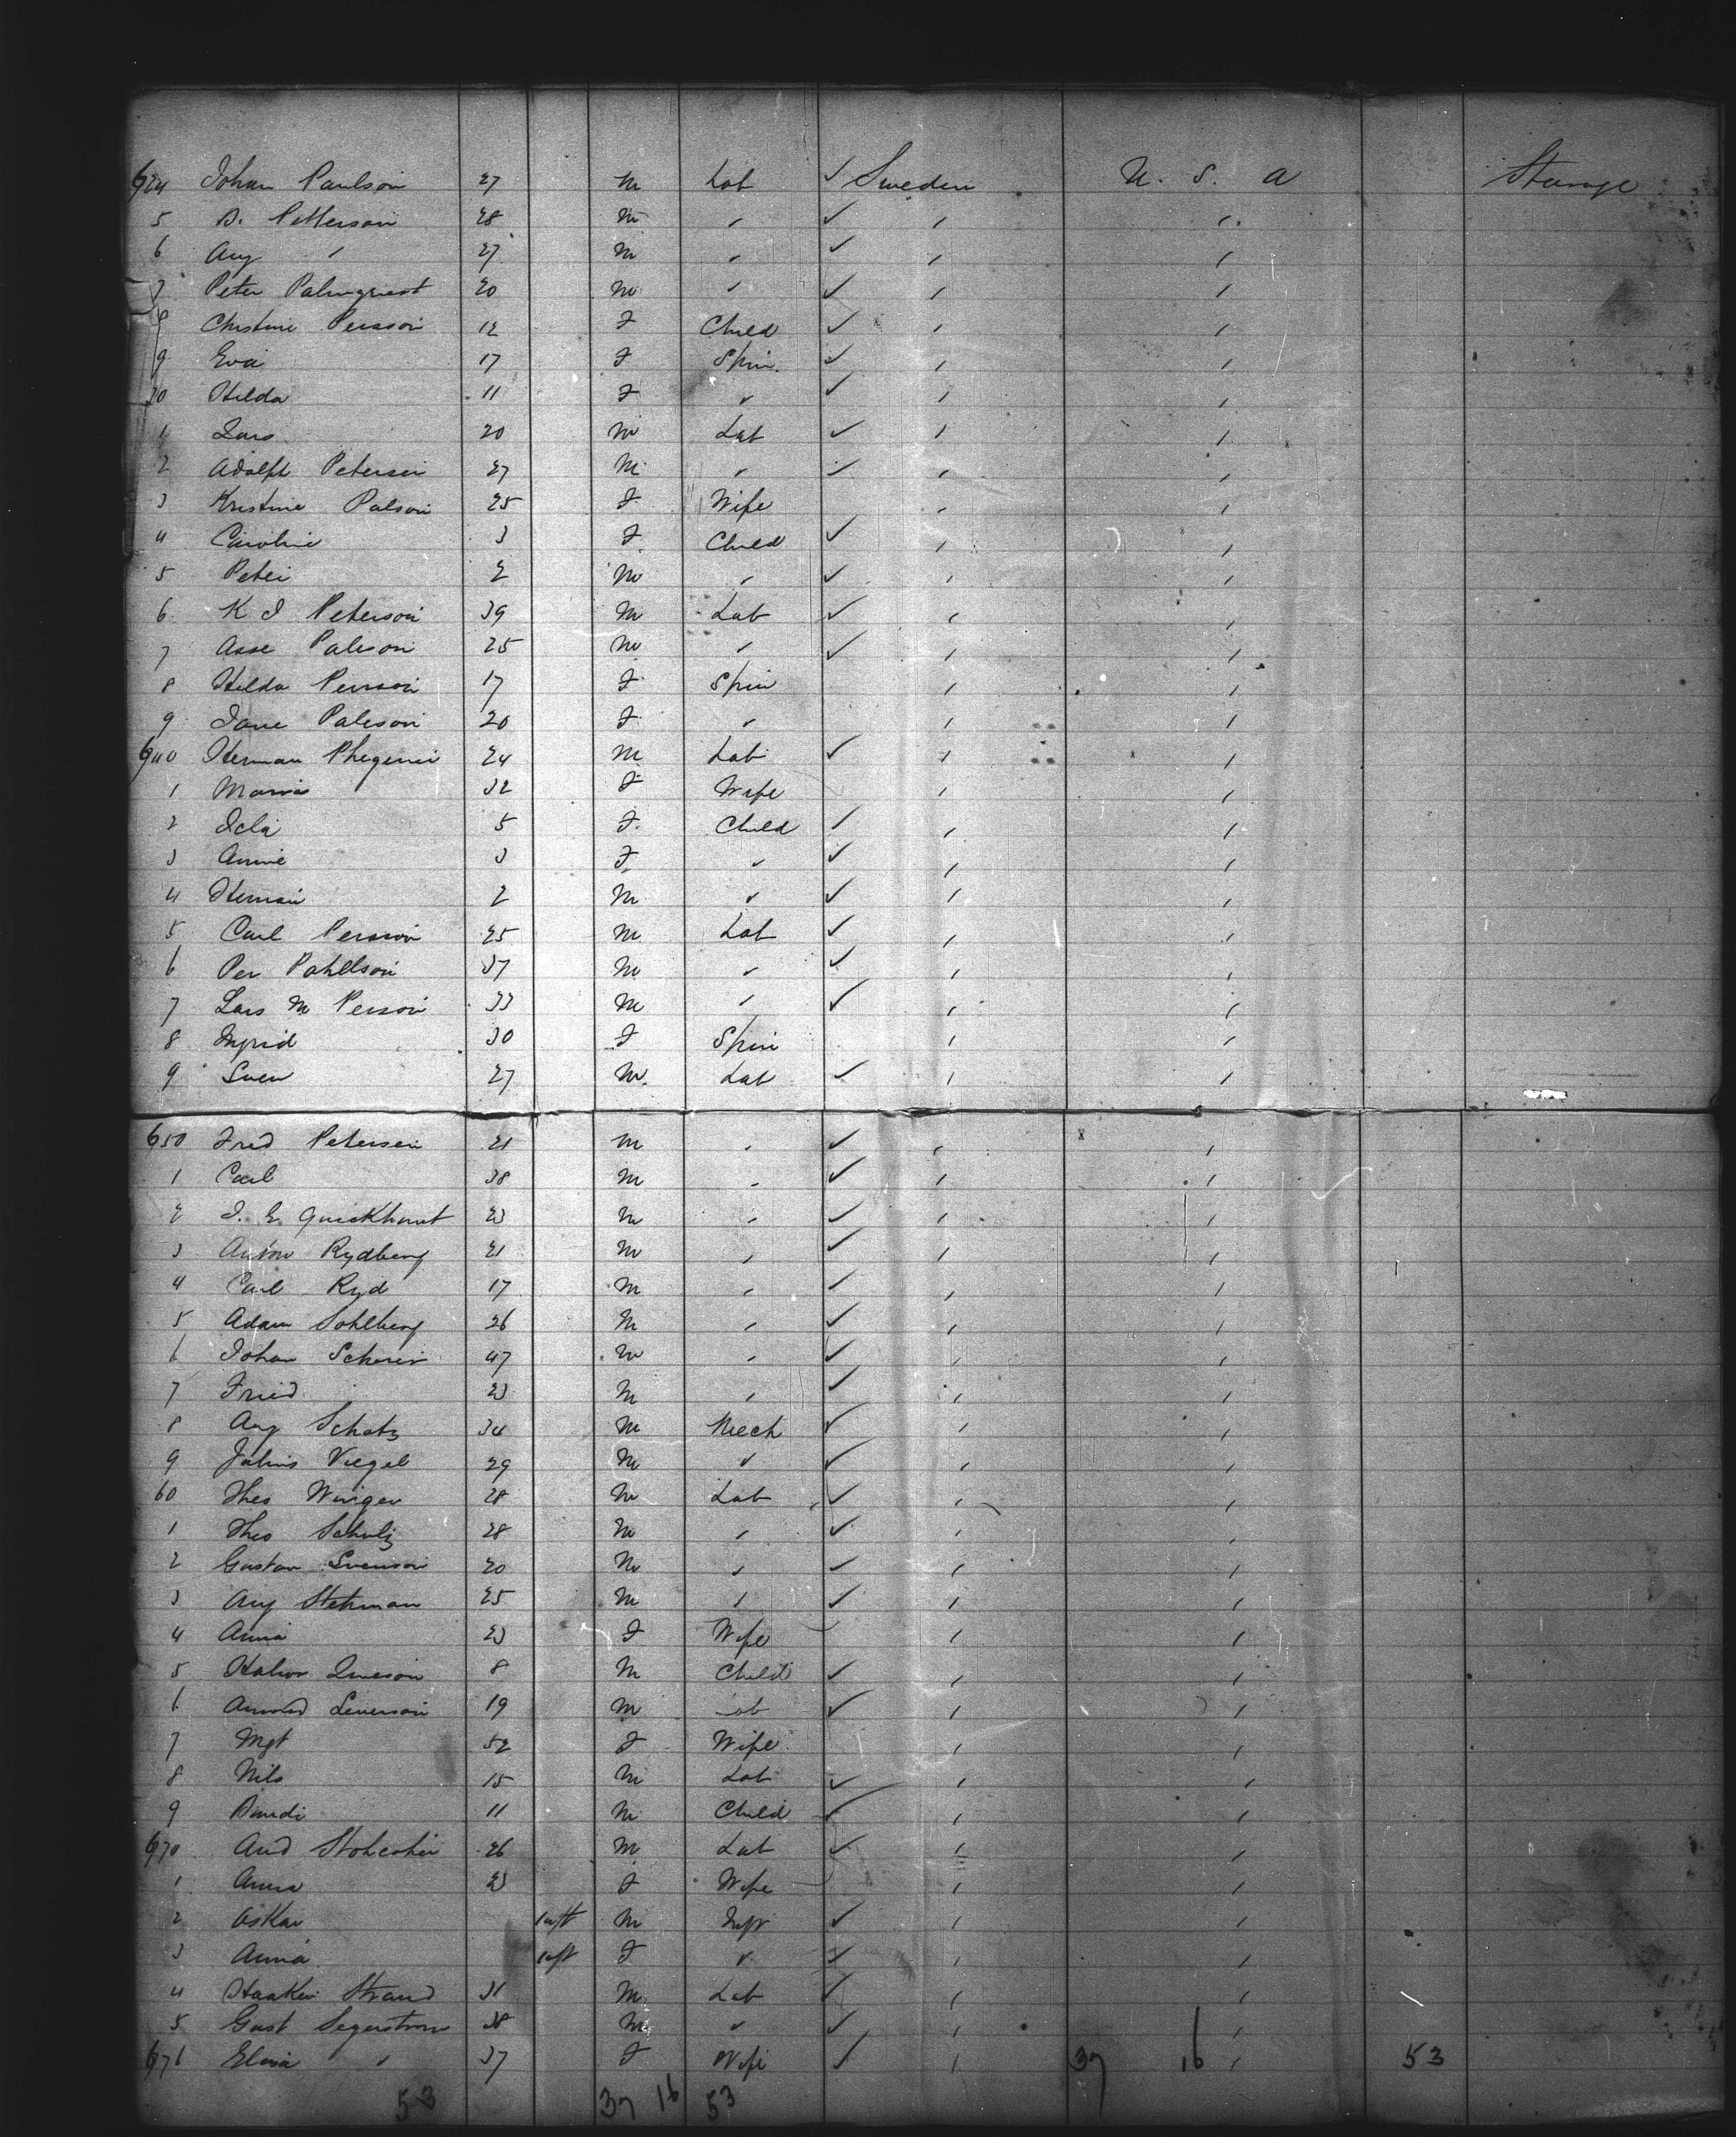 624 Johan Paulson 27 M Lab ✓ Sweden U. S. A Steerage
5 B. Petterson 28 M " ✓ " "
6 Aug " 27 M " ✓ " "
7 Peter Palmquest 20 M " ✓ " "
8 Christine Persson 12 F Child ✓ " "
9 Eva 17 F Spin. ✓ " "
30 Hilda 11 F " ✓ " "
1 Lars 20 M Lab ✓ " "
2 Adolph Petersen 27 M " ✓ " "
3 Kristine Palson 25 F Wife " "
4 Caroline 3 F Child ✓ " "
5 Peter 2 M " ✓ " "
6 K J Peterson 39 M Lab ✓ " "
7 Asse Paleson 25 M " ✓ " "
8 Hilda Persson 17 F Spin " "
9 Jane Paleson 20 F " " "
640 Herman 24 M Lab ✓ " "
1 Maria 32 F Wife " "
2 5 F Child ✓ " "
3 Annie 3 F " ✓ " "
4 Herman 2 M " ✓ " "
5 Carl Persson 25 M Lab ✓ " "
6 Per Pahllson 37 M " ✓ " "
7 Lars M Persson 33 M " ✓ " "
8 Ingrid 30 F Spin " "
9 Sven 27 M Lab ✓ " "
650 Fred Petersen 21 M " ✓ " "
1 Carl 38 M " ✓ " "
2 J. E. 23 M " ✓ " "
3 Anton Rydberg 21 M " ✓ " "
4 Carl Ryd 17 M " ✓ " "
5 Adam Sohlberg 26 M " ✓ " "
6 Johan 47 M " ✓ " "
7 Fried 23 M " ✓ " "
8 Aug Schatz 34 M Mech ✓ " "
9 Julius Viegel 29 M " ✓ " "
60 Theo 28 M Lab ✓ " "
1 Theo Schulz 28 M " ✓ " "
2 Gustav Svenson 20 M " ✓ " "
3 Aug Stehman 25 M " ✓ " "
4 Anna 23 F Wife " "
5 8 M Child ✓ " "
6 Severson 19 M ✓ " "
7 Mgt 52 F Wife " "
8 Nils 15 M Lab ✓ " "
9 11 M Child ✓ " "
670 And 26 M Lab ✓ " "
1 Anna 23 F Wife " "
2 Oskar M Inft ✓ " "
3 Anna F " ✓ " "
4 Haaken Strand 31 M Lab ✓ " "
5 Gust Segerstrom 38 M " ✓ " "
676 " 37 F Wife ✓ " 37 16 " 53
53 37 16 53